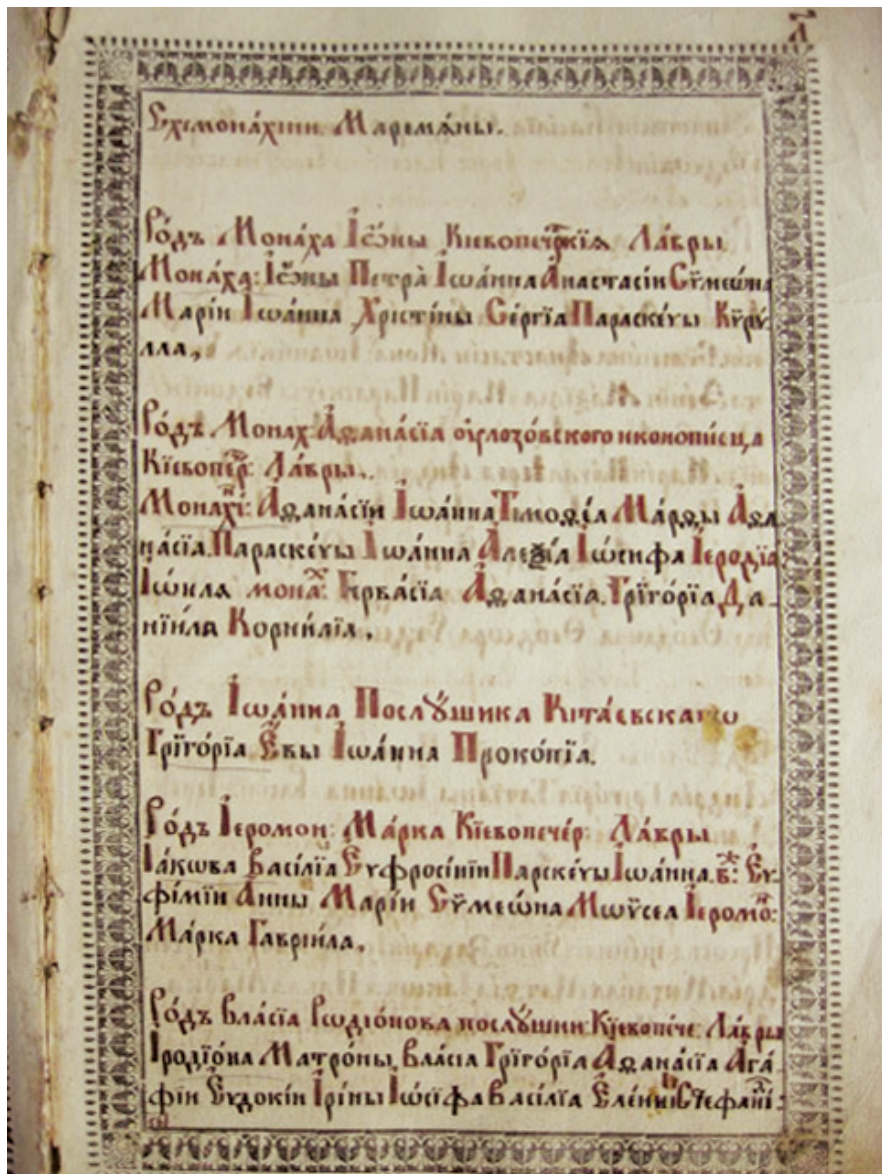 л҃
Схимона́хіни Маріѧ́ны.
Ро́дъ Мона́ха Іѡ́ны Кіевопече́рскїѧ Ла́вры
Мона́ха: Іѡ́ны Петра̀ Іѡа́нна Анастасіи Сѷмеѡ́на
Марі́и Іѡа́нна Хрісті́ны Се́ргїа Параске́ѵы Кѷрі́
лла,
Ро́дъ Монах: Аѳана́сїа иконопи́сца
Кїевопе́р: Ла́вры..
Мона́х: Аѳана́сіи Іѡа́нна Тімоѳе́а Ма́рѳы Аѳа
на́сїа. Параске́ѵы Іѡа́нна Алеѯі́а Іѡ́сифа Іеродїа
Іѡи́лѧ мона́х: Герва́сїа Аѳана́сїа. Грїго́рїа Да
нїи́лѧ Корни́лїа,
Ро́дъ Іѡа́нна Послꙋ́шника Кіта́евскагѡ
Грїго́рїа Е́ѵвы Іѡа́нна Проко́пїа.
Ро́дъ Іеромон: Ма́рка Кїевопече́р: Ла́вры
Іа́кѡва Васі́лїа Еѵфросі́ніи Парске́ѵы Іѡа́нна. в҃: Еѵ
фи́міи Анны Марі́и Сѷмеѡ́на Мѡѷсеа Іеромо́:
Ма́рка Гаврїи́ла,
Ро́дъ Вла́сїа Рѡдїо́нова послꙋ́шни: Кїевопече: Ла́вры
Іродїо́на Матро́ны, Вла́сїа Грїго́рїа Аѳана́сїа Ага́
фіи Еѵдокі́и Ірі́ны Іѡ́сїфа Васі́лїа Еле́ны Стефані: